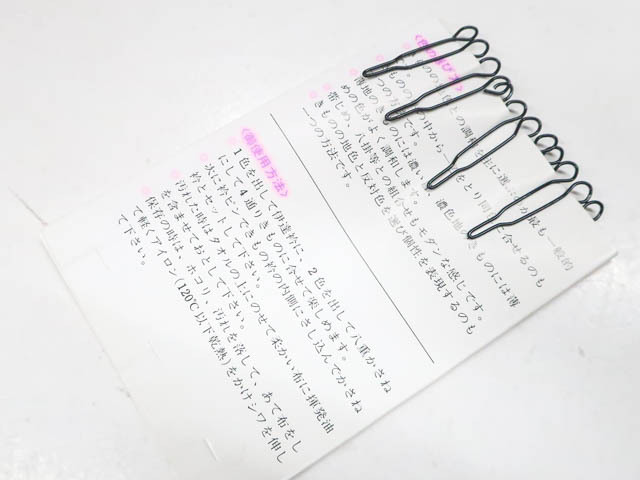 〈色の選び方〉
ものの地色との調和を主に選ぶのが最も一般的
ものの の中から一 をとり同 に合せるのも
一つの方法です。
薄地のきものには濃い色、濃色地のきものには薄
めの色がよく調和します。
帯じめ、八掛等との組合せもモダンな感じです。
きものの地色と反対色を選び個性を表現するのも
一つの方法です。
〈御使用方法〉
1色を出して伊達衿に、2色を出して八重かさね
にして4通りきものに合せて楽しめます。
次に衿ピンできもの衿の内側にさし込んでかさね
衿とセットして下さい。
汚れた時はタオルの上にのせて柔かい布に揮発油
を含ませておとして下さい。
保存の時は、ホコリ、汚れを落して、あて布をし
て軽くアイロン(120℃以下乾熱)をかけシワを伸し
て下さい。